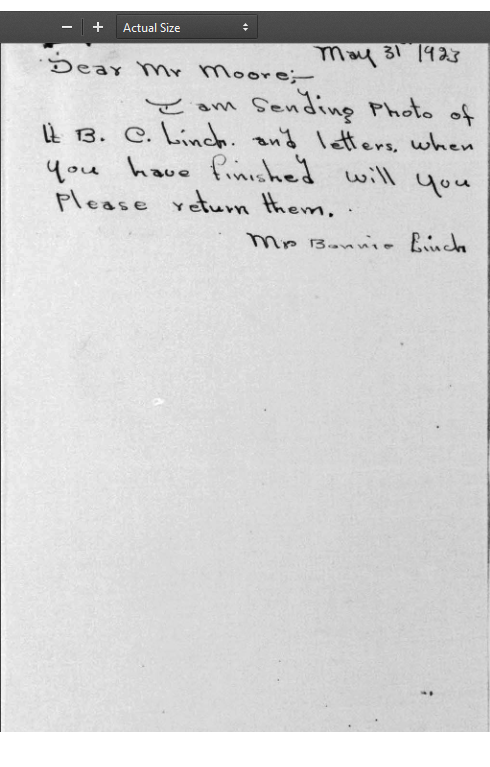 Actual Size
May 31 1923
Dear Mr Moore;—
I am Sending Photo of
Lt B. C. Linch. and letters, when
you have finished will you
Please return them.
Mrs Bennie Linch